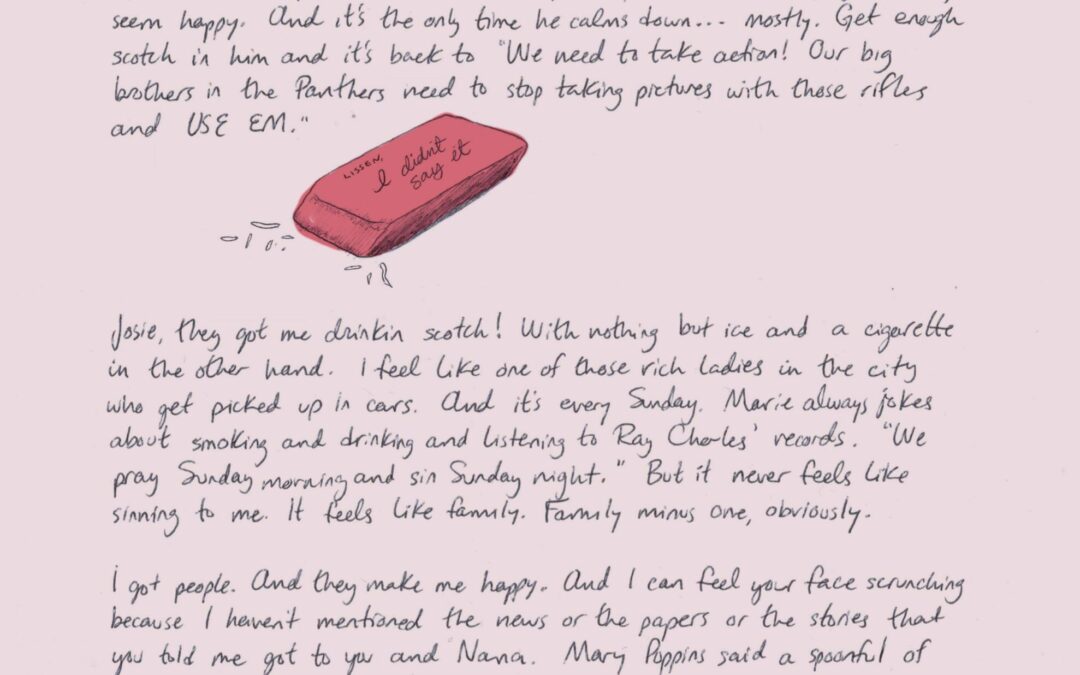 seem happy. And it's the only time he calms down... mostly. Get enough
scotch in him and it's back to "We need to take action! Our big
brothers in the Panthers need to stop taking pictures with those rifles
and USE EM."
LISSEN,
I didn't
say it
Josie, they got me drinkin scotch! With nothing but ice and a cigarette
in the other hand. I feel like one of those rich ladies in the city
who get picked up in cars. And it's every Sunday. Marie always jokes
about smoking and drinking and listening to Ray Charles' records. "We
pray Sunday morning and sin Sunday night." But it never feels like
sinning to me. It feels like family. Family minus one, obviously.
I got people. And they make me happy. And I can feel your face scrunching
because I haven't mentioned the news or the papers or the stories that
you told me got to you and Nana. Mary Poppins said a spoonful of